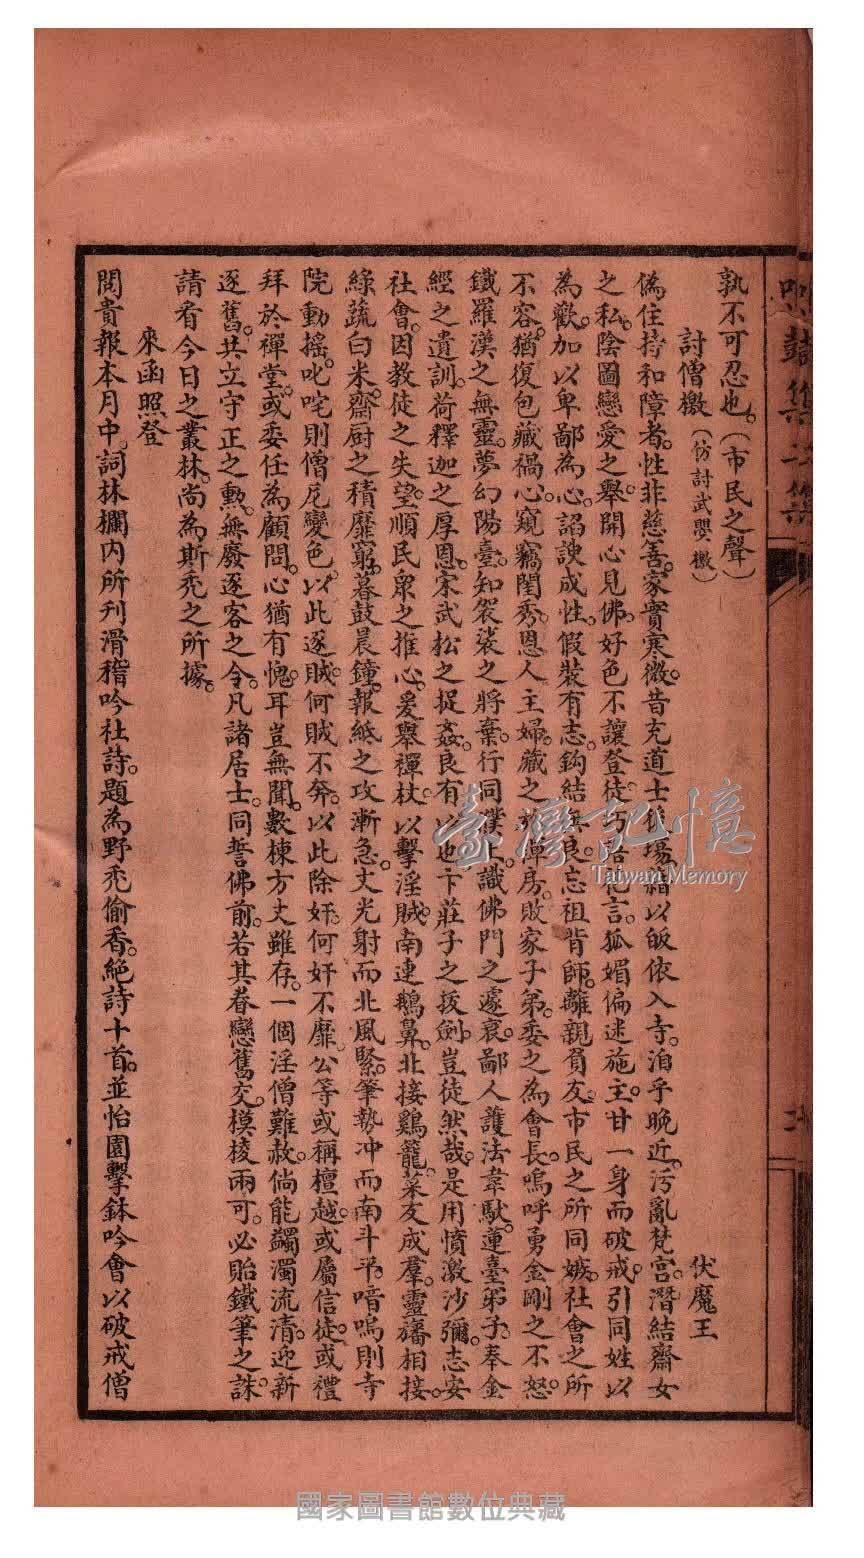 孰不可忍也。（市民之聲）
討僧檄（仿討武曌檄）
伏魔王
偽住持和障者。性非慈善。家實寒微。昔充道士後場。藉以皈依入寺。洎乎晚近。污亂梵宮。潛結齋女
之私。陰圖戀愛之舉。開心見佛。好色不讓登徒。巧語花言。狐媚偏迷施主。甘一身而破戒。引同姓以
為歡。加以卑鄙為心。諂諛成性。假裝有志。鈎結無良。忘祖背師。離親負友。市民之所同嫉。社會之所
不容。猶復包藏禍心。窺竊閨秀。恩人主婦。藏之於禪房。敗家子弟。委之為會長。嗚呼。勇金剛之不怒。
鐵羅漢之無靈。夢幻陽臺。知袈裟之將棄。行同濮上。識佛門之遽衰。鄙人護法韋馱。蓮臺弟子。奉金
經之遺訓。荷釋迦之厚恩。宋武松之捉姦。良有以也。卞莊子之拔劍。豈徒然哉。是用憤激沙彌。志安
社會。因教徒之失望。順民衆之推心。爰舉禪杖。以擊淫賊。南連鵝鼻。北接鷄籠。菜友成羣。靈旛相接。
綠蔬白米。齋厨之積靡窮。暮鼓晨鐘。報紙之攻漸急。丈光射而北風緊。筆勢冲而南斗平。喑嗚則寺
院動搖。叱咤則僧尼變色。以此逐賊。何賊不奔。以此除奸。何奸不靡。公等或稱檀越。或屬信徒。或禮
拜於禪堂。或委任為顧問。心猶有愧。耳豈無聞。數棟方丈雖存。一個淫僧難赦。倘能蠲濁流清。迎新
逐舊。共立守正之勳。無廢逐客之令。凡諸居士。同誓佛前。若其眷戀舊交。模棱兩可。必貽鐵筆之誅。
請看今日之叢林。尚為斯禿之所據。
來函照登
閱貴報本月中。詞林欄內所刊滑稽吟社詩。題為野禿偷香。絶詩十首。並怡園擊鉢吟會以破戒僧
臺灣記憶
Taiwan Memory
國家圖書館數位典藏